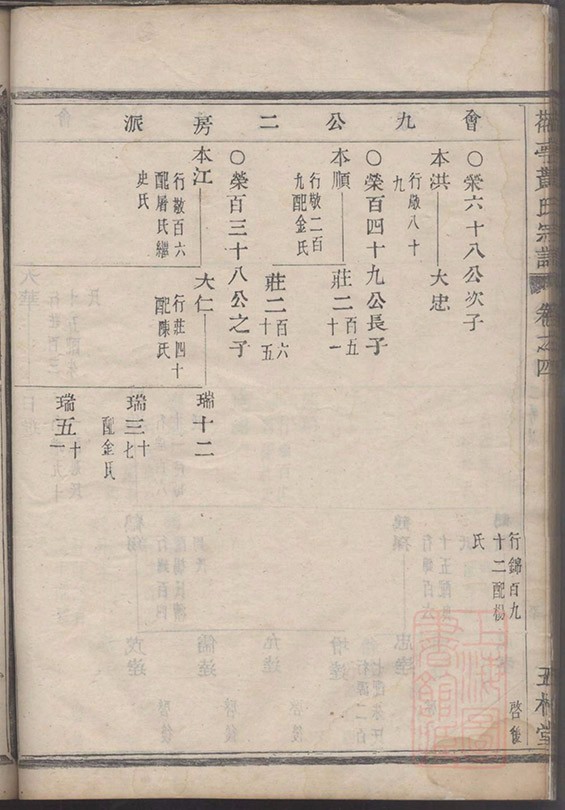 黃氏宗譜 卷之四 五桂堂
會九公二房派
行錦百九
十二配楊
氏
啓後
○榮六十八公次子
本洪——大忠
行敬八十
九
○榮百四十九公長子
本順——莊二百五十一
行敬二百
九配金氏
莊二百六十五
○榮百三十八公之子
本江——大仁——瑞十二
行敬百六
配屠氏繼
史氏
行莊四十
配陳氏
瑞三十七
配金氏
瑞五十一